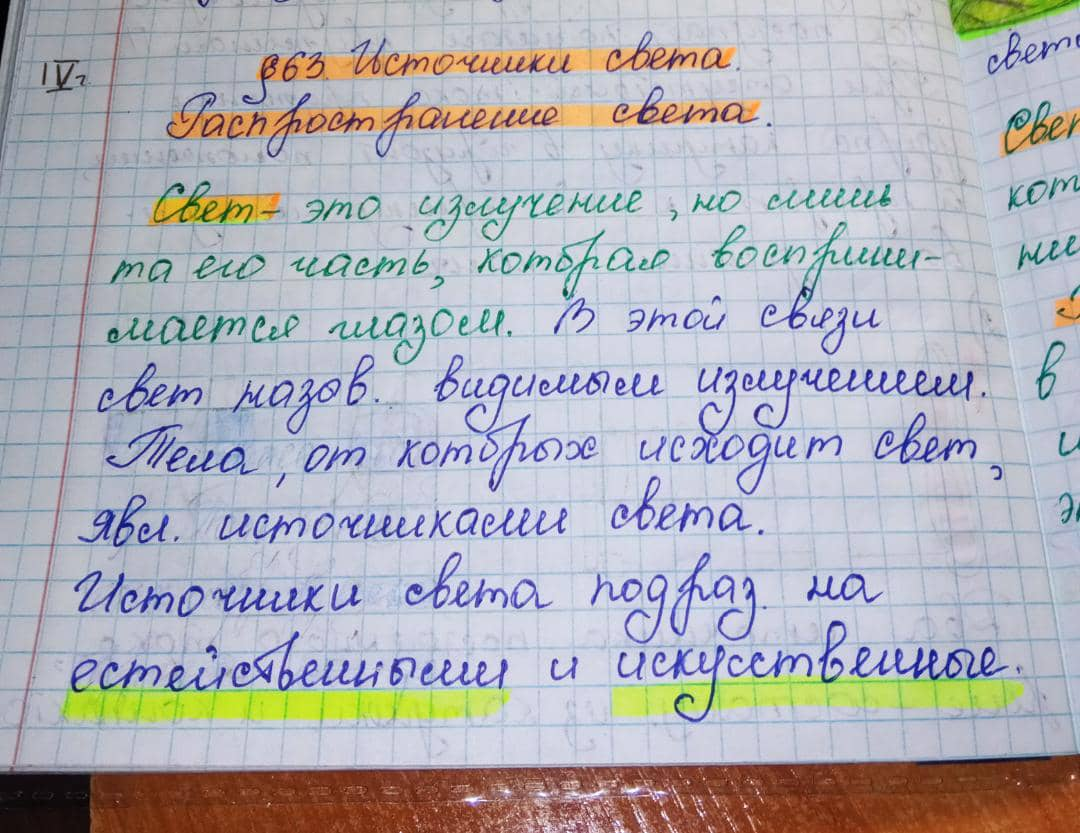 IV г
§63 Источники света.
Распространение света.
Свет - это излучение, но лишь
та его часть, которая восприни-
мается глазом. В этой связи
свет назов. видимым излучением.
Тела, от которых исходит свет,
явл. источниками света.
Источники света подраз. на
естейственными и искусственные.
свето
Свет
кот
ни
в
и
э